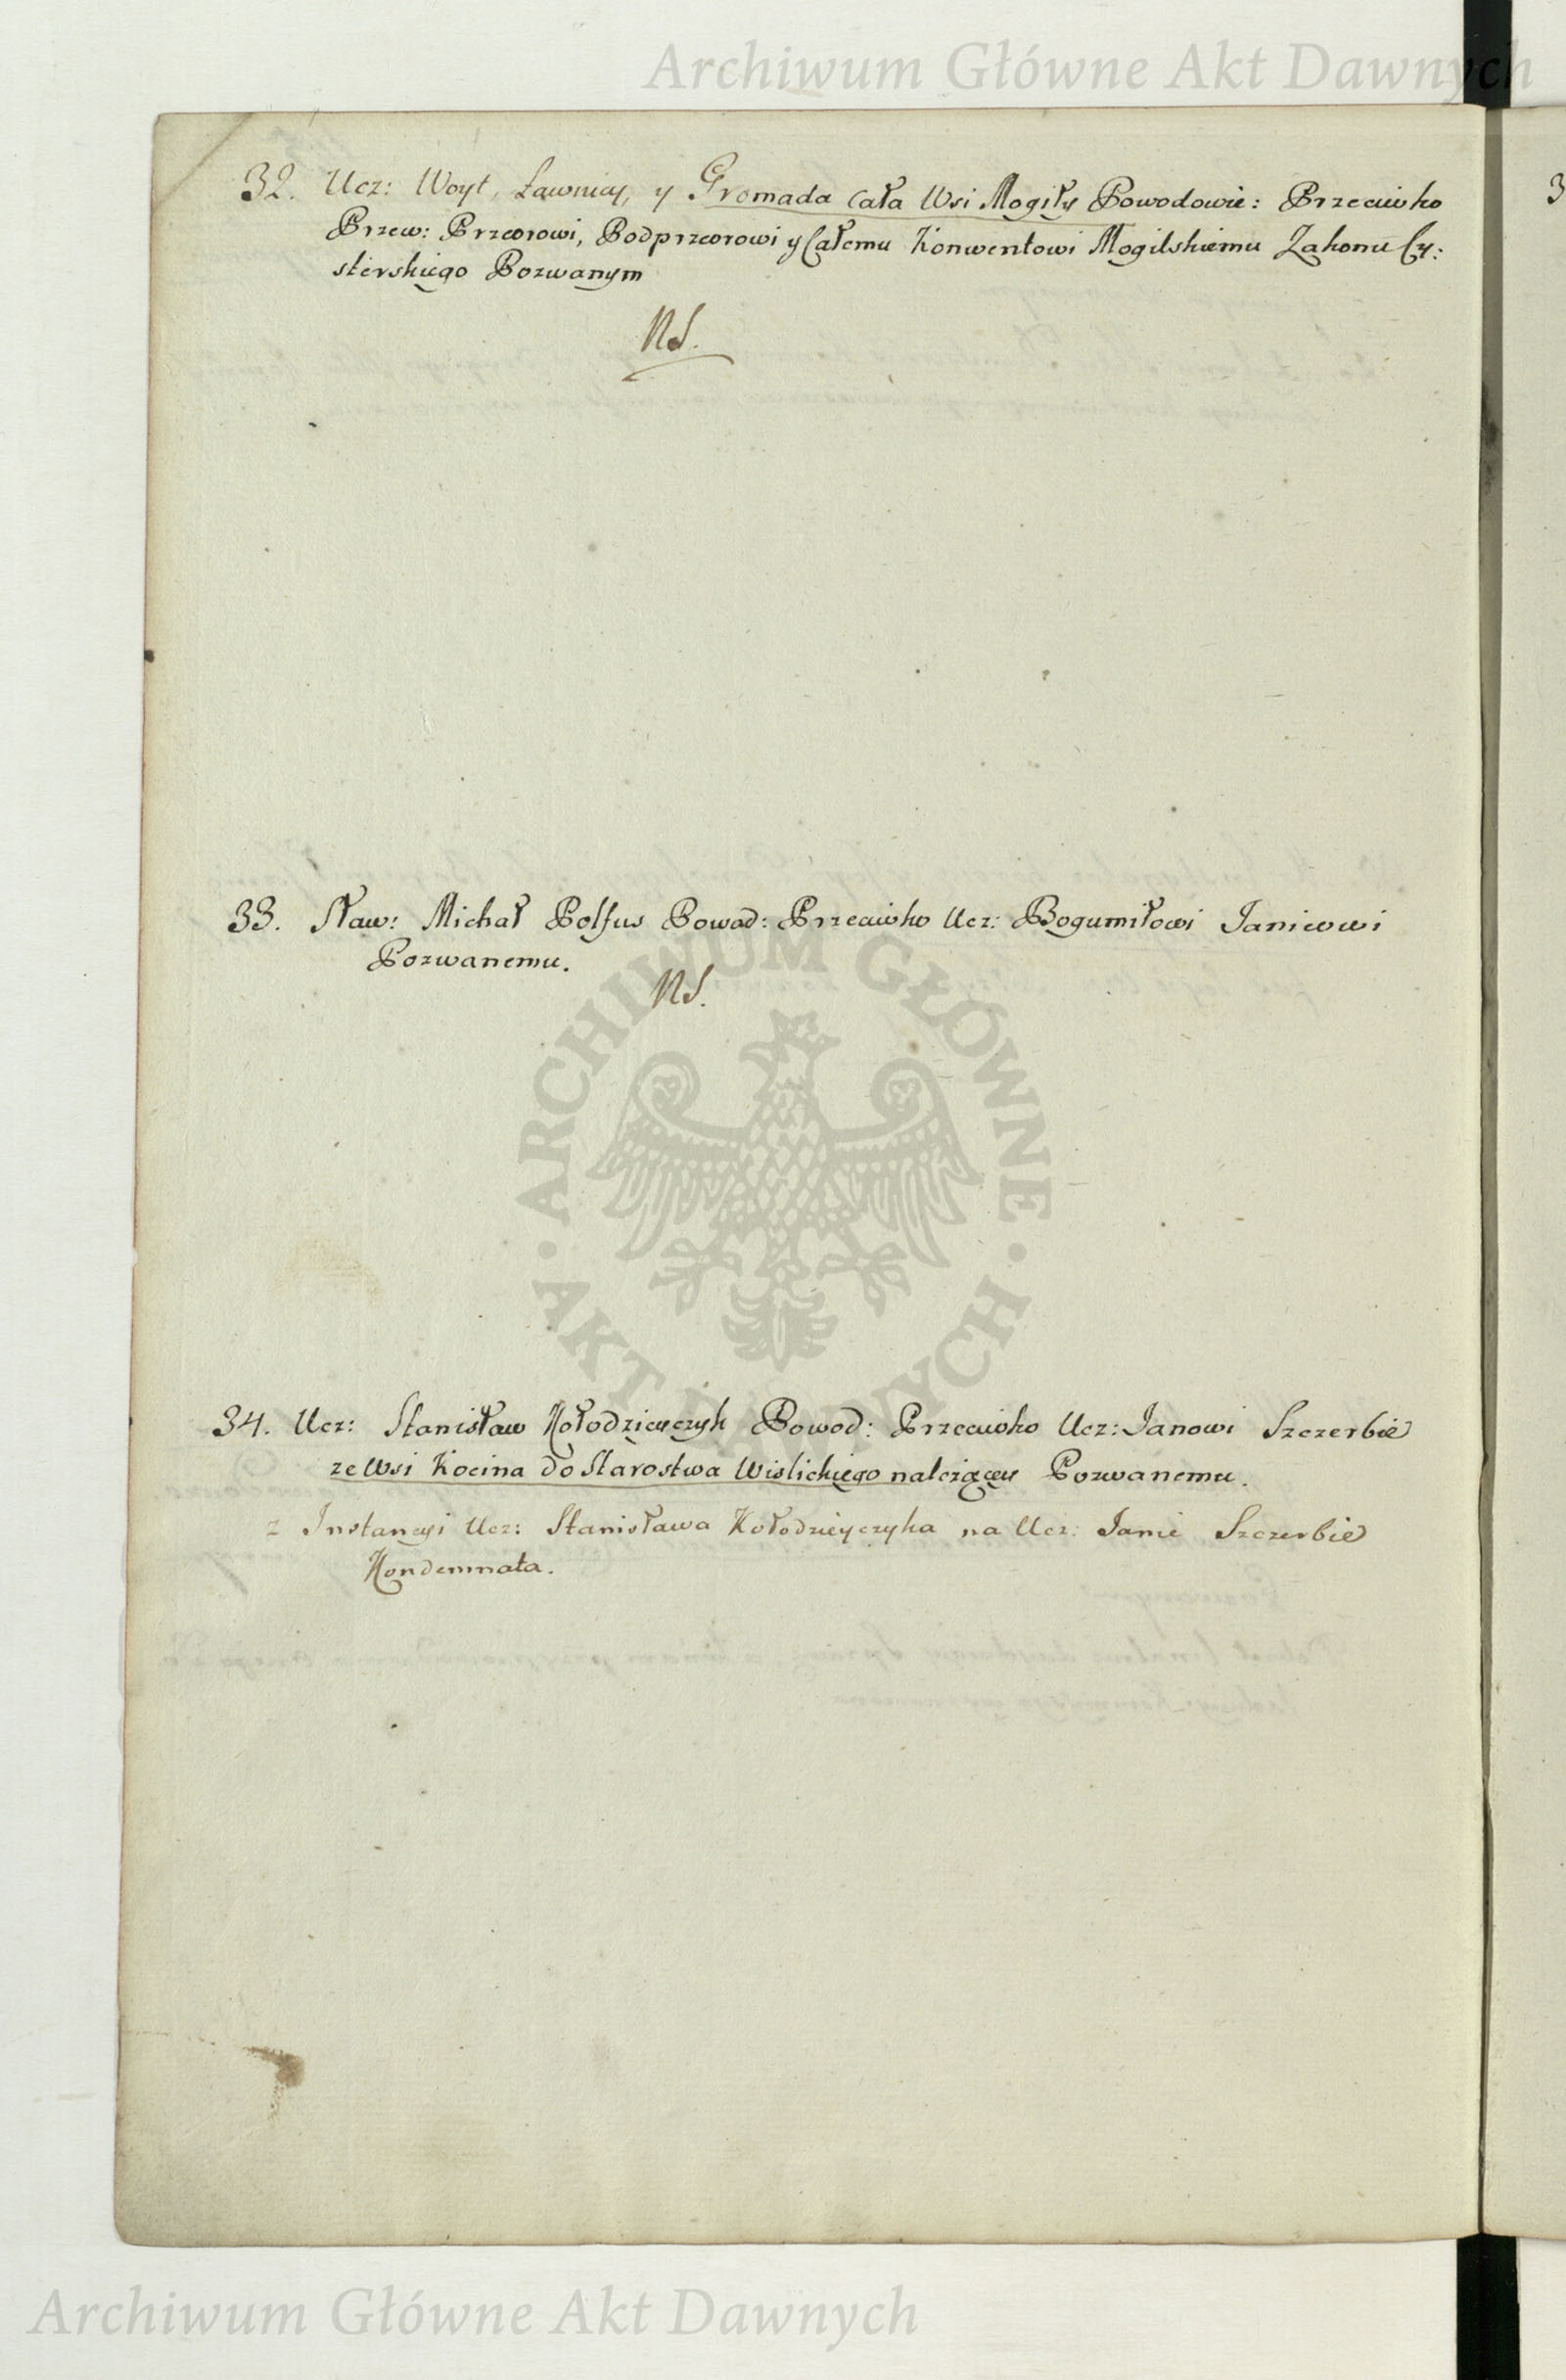 Archiwum Główne Akt Dawnych
32. Ucz: Woyt, Ławnicy, y Gromada Cała Wsi Mogiły Powodowie: Przeciwko
Przew: Przeorowi, Podprzeorowi y Całemu Konwentowi Mogilskiemu Zakonu Cy:
sterskiego Pozwanym
NS.
33. Sław: Michał Polfus Powod: Przeciwko Ucz: Bogumiłowi Janiewi
Pozwanemu.
NS.
ARCHIWUM GŁÓWNE · AKT DAWNYCH ·
34. Ucz: Stanisław Kołodzieyczyk Powod: Przeciwko Ucz: Janowi Szczerbie
ze Wsi Kocina do Starostwa Wislickiego należącey Pozwanemu.
z Instancyi Ucz: Stanisława Kołodzieyczyka na Ucz: Janie Szczerbie
Kondemnata.
Archiwum Główne Akt Dawnych